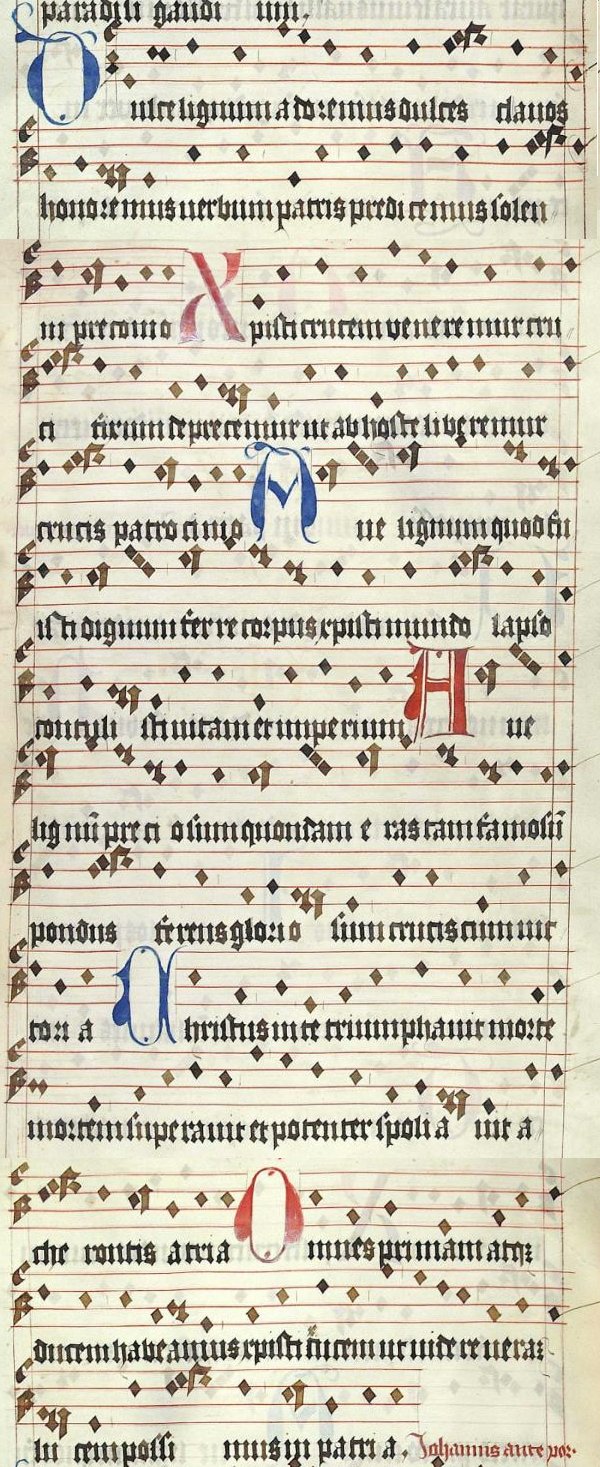 paradisi gaudi um.
Dulce lignum adoremus dulces clauos
honoremus uerbum patris predicemus solen
ni preconio Xpisti crucem veneremur cru
ci firium deprecemur ut ab hoste liberemur
crucis patrocinio Aue lignum quod fu
isti dignum ferre corpus xpisti mundo lapso
contulisti uitam et imperium Aue
lignū preciosum quondam eras tam famosū
pondus ferens gloriosum crucis cum uic
tori a Christus in te triumphauit morte
mortem superauit et potenter spoliauit a
che rontis atria Omnes primam atqꝫ
ducem habeamus xpisti crucem ut uidere ueraꝫ
lu cem possi mus in patri a. Johannis ante por.